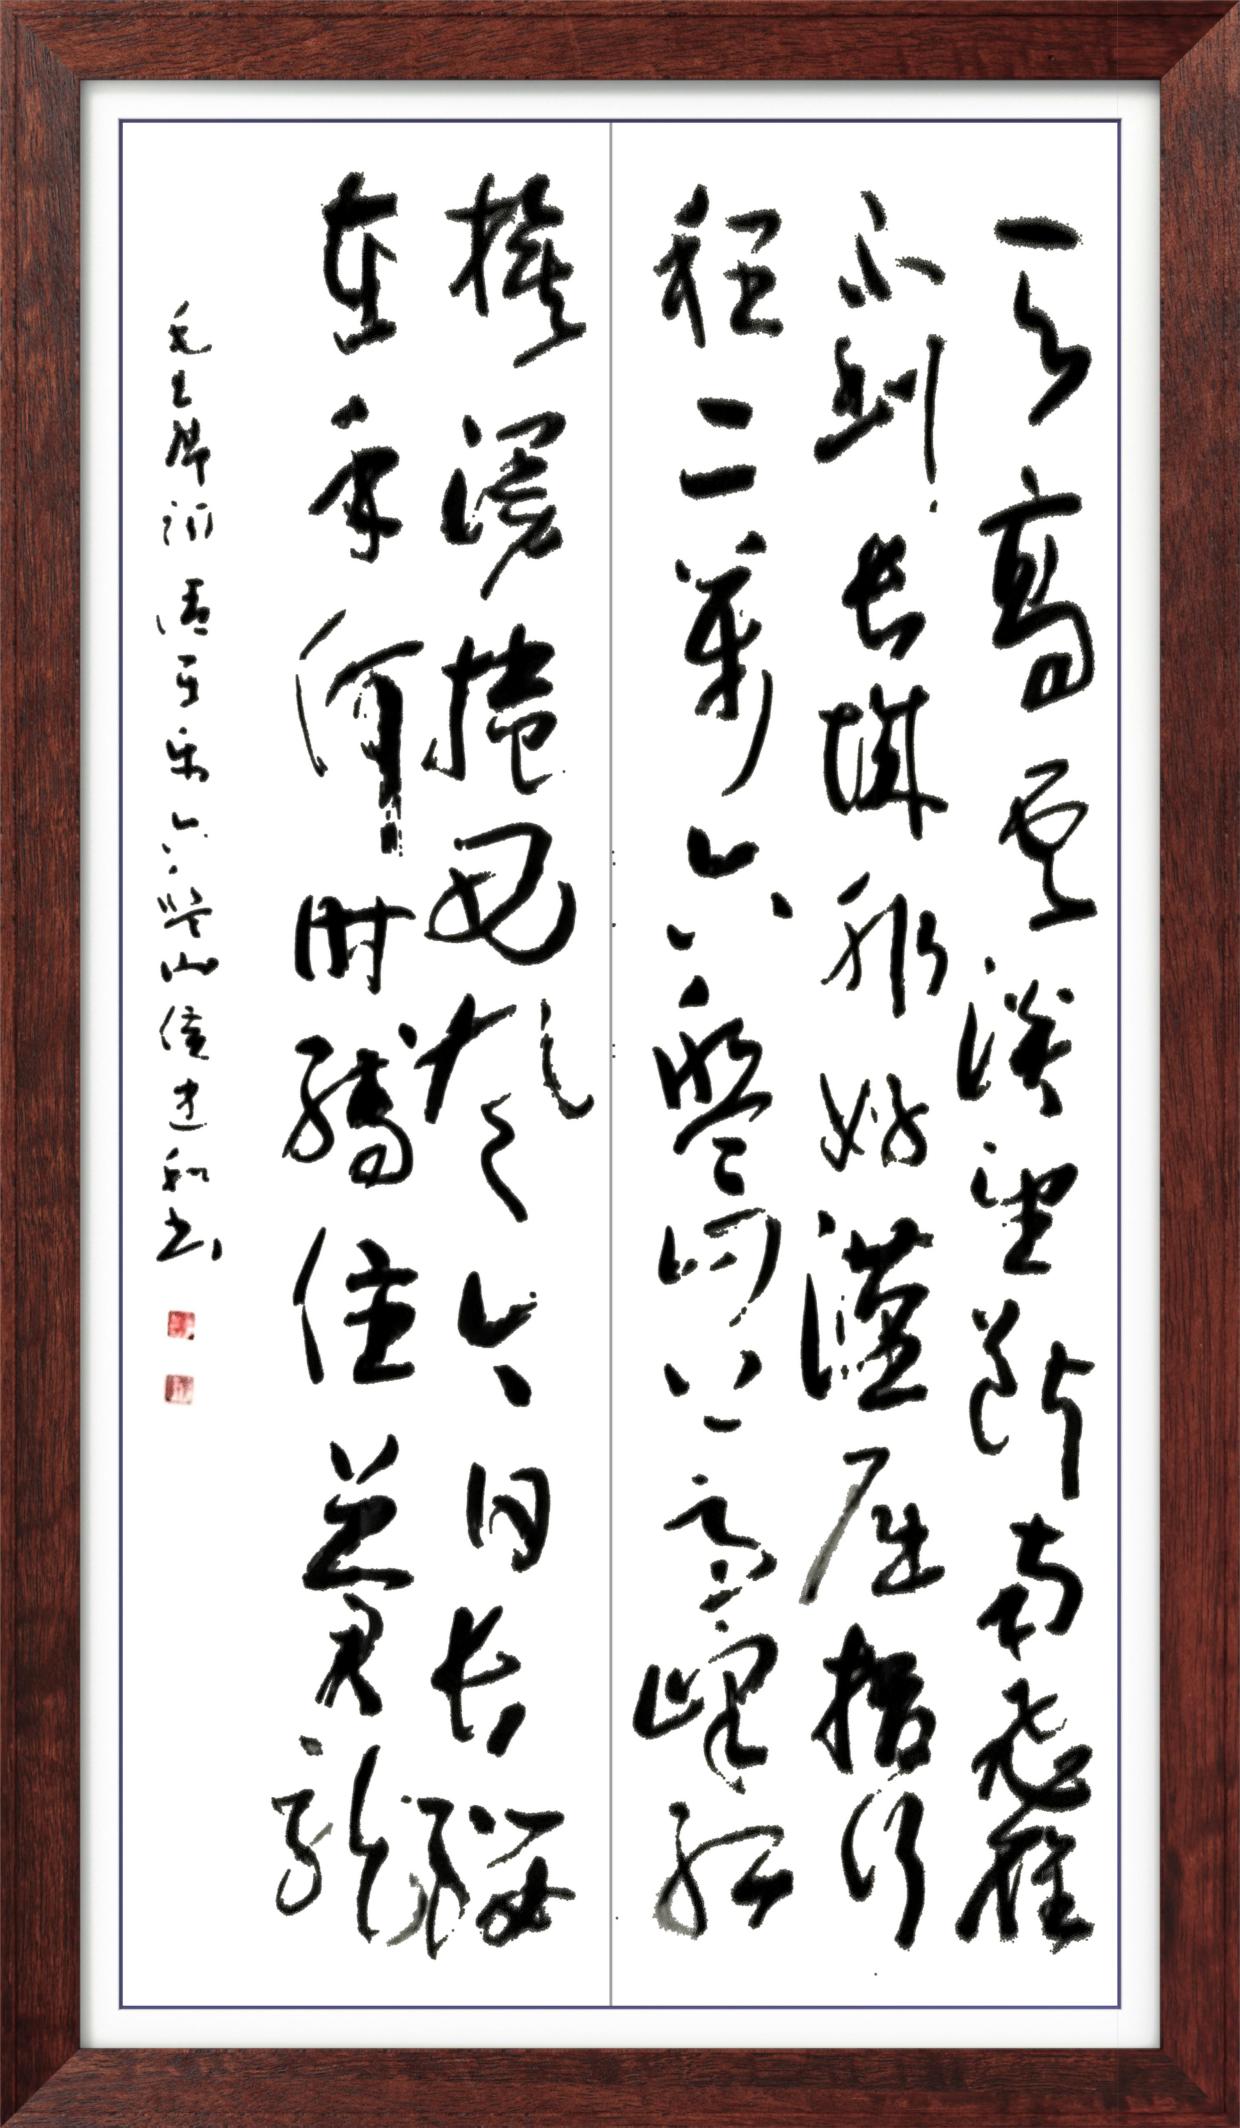 天高云淡望断南飞雁
不到长城非好漢屈指行
程二萬六盤山上高峰红
旗漫捲西风今日长缨
在手何时缚住苍龙
毛主席词清平乐六盘山侯建和书